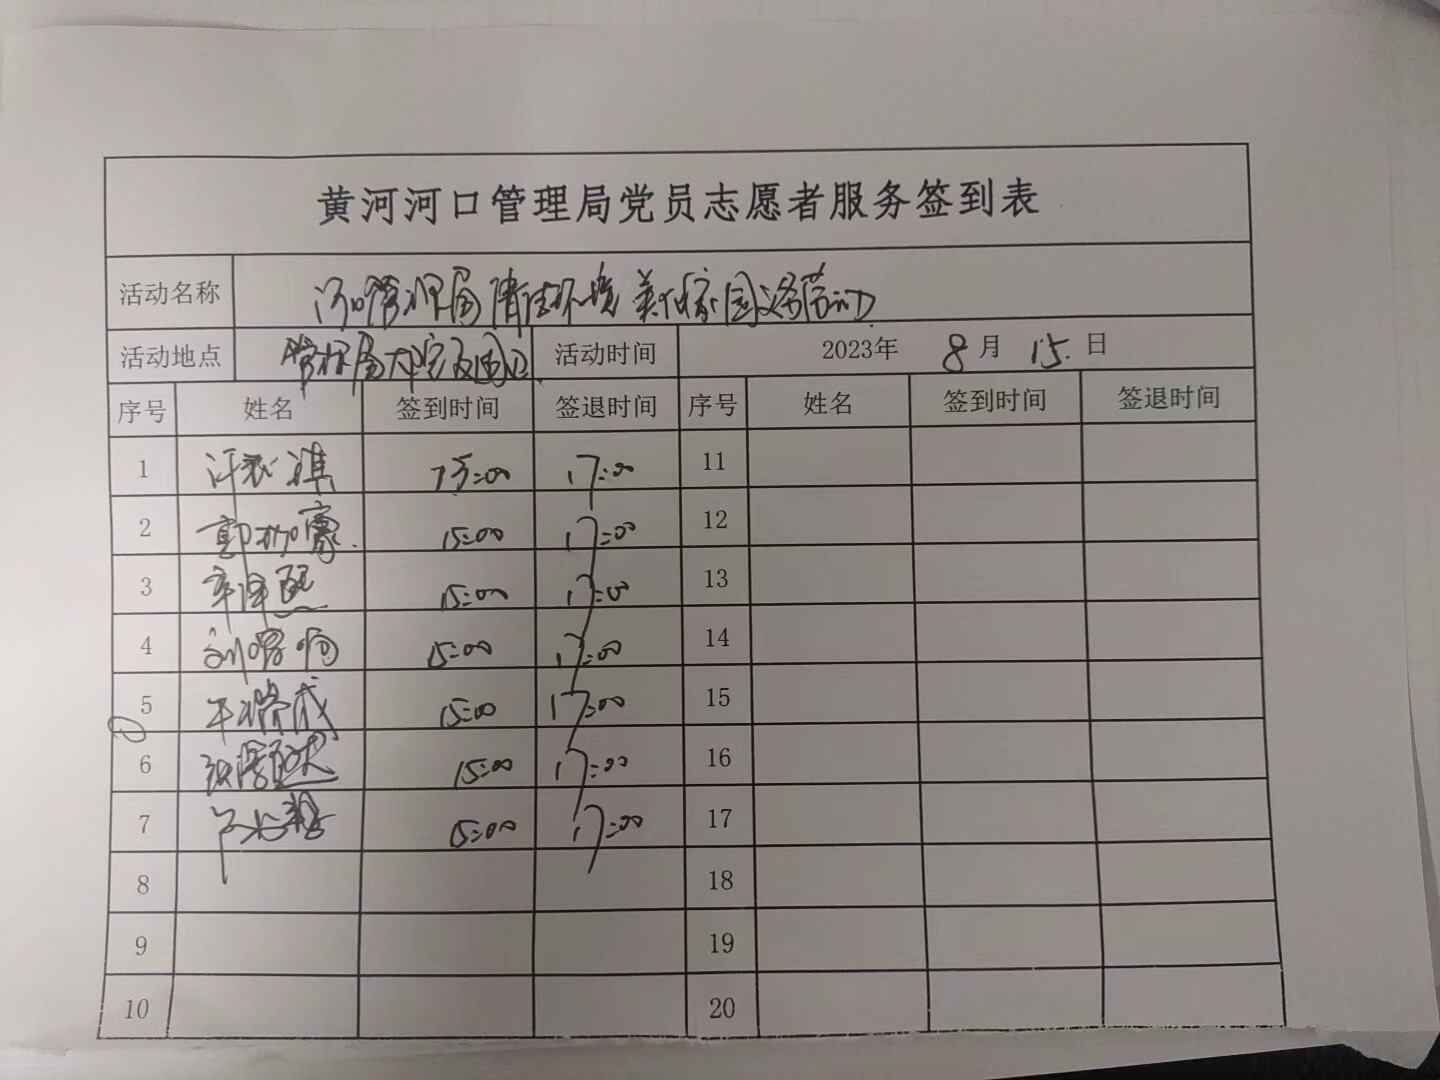 黄河河口管理局党员志愿者服务签到表
活动名称 河口管理局清洁环境 美化家园义务劳动
活动地点 管理局大院及周边 活动时间 2023年 8月 15日
序号 姓名 签到时间 签退时间 序号 姓名 签到时间 签退时间
1 15:00 17:00 11
2 郭加豪 15:00 17:00 12
3 15:00 17:00 13
4 15:00 17:00 14
5 15:00 17:00 15
6 15:00 17:00 16
7 15:00 17:00 17
8 18
9 19
10 20